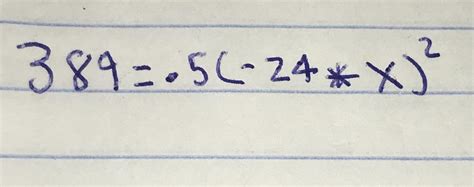 389=.5(-24*x)²